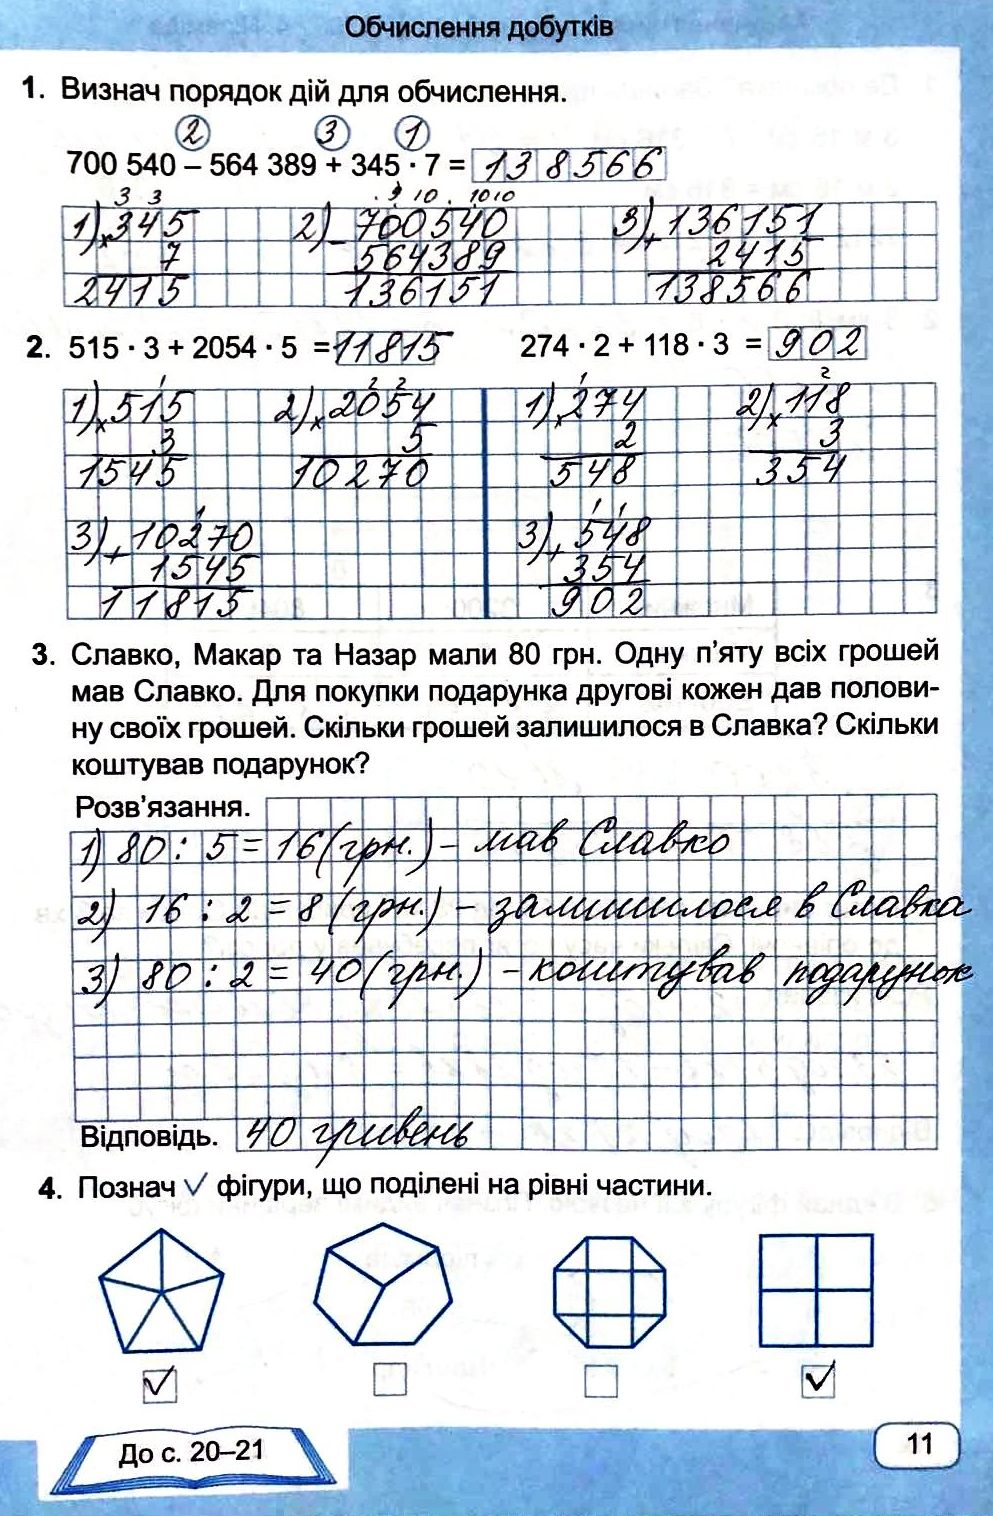 Обчислення добутків
1. Визнач порядок дій для обчислення.
2 3 1
700 540 – 564 389 + 345 · 7 = 138566
3 3 . 9 10 . 10 10
1) × 345 2) – 700540 3) + 136151
7 564389 2415
2415 136151 138566
2. 515 · 3 + 2054 · 5 = 11815 274 · 2 + 118 · 3 = 902
1 2 2 1 2
1) × 515 2) × 2054 1) × 274 2) × 118
3 5 2 3
1545 10270 548 354
1 1 1
3) + 10270 3) + 548
1545 354
11815 902
3. Славко, Макар та Назар мали 80 грн. Одну п'яту всіх грошей
мав Славко. Для покупки подарунка другові кожен дав полови-
ну своїх грошей. Скільки грошей залишилося в Славка? Скільки
коштував подарунок?
Розв'язання.
1) 80 : 5 = 16 (грн.) – мав Славко
2) 16 : 2 = 8 (грн.) – залишилося в Славка
3) 80 : 2 = 40 (грн.) – коштував подарунок
Відповідь. 40 гривень
4. Познач √ фігури, що поділені на рівні частини.
До с. 20–21
11